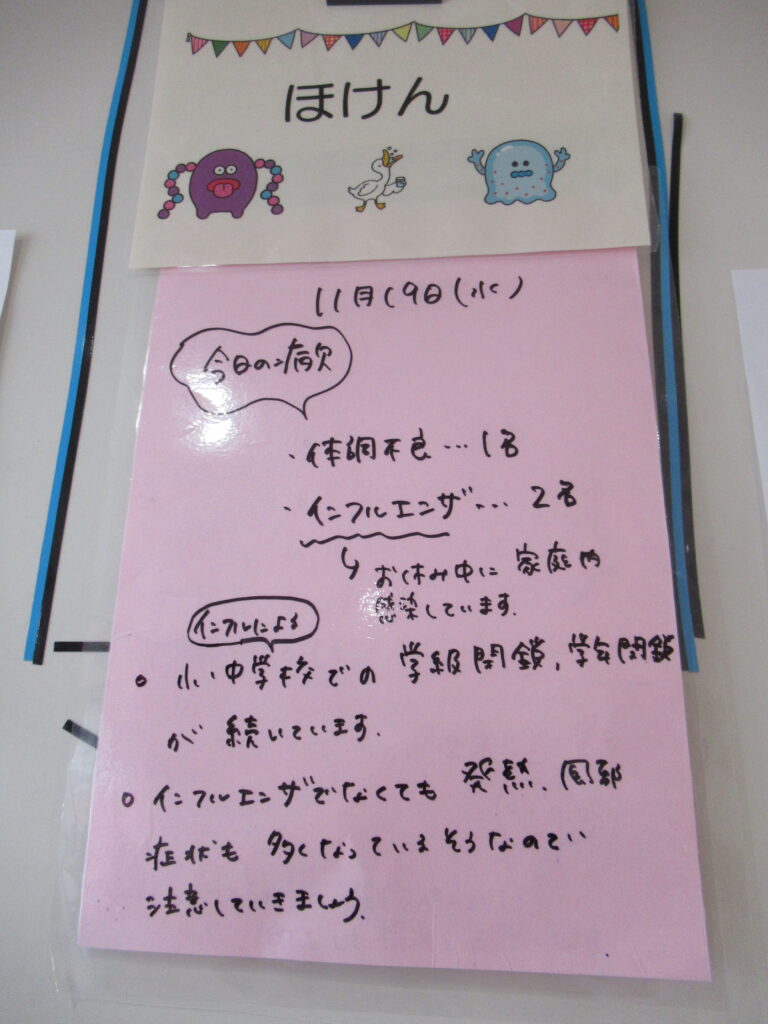 ほけん
11月19日(水)
今日の病欠
・体調不良…1名
・インフルエンザ…2名
お休み中に家庭内
感染しています。
インフルによる
○小・中学校での学級閉鎖、学年閉鎖
が続いています。
○インフルエンザでなくても発熱、風邪
症状も多くなっているそうなので
注意していきましょう。